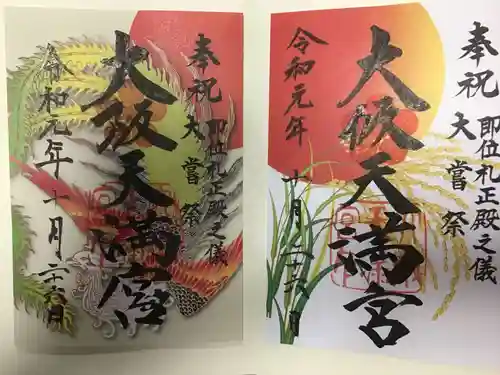 奉祝 即位礼正殿之儀
大嘗祭
大阪天満宮
令和元年十月二十六日
奉祝 即位礼正殿之儀
大嘗祭
大阪天満宮
令和元年十月二十六日